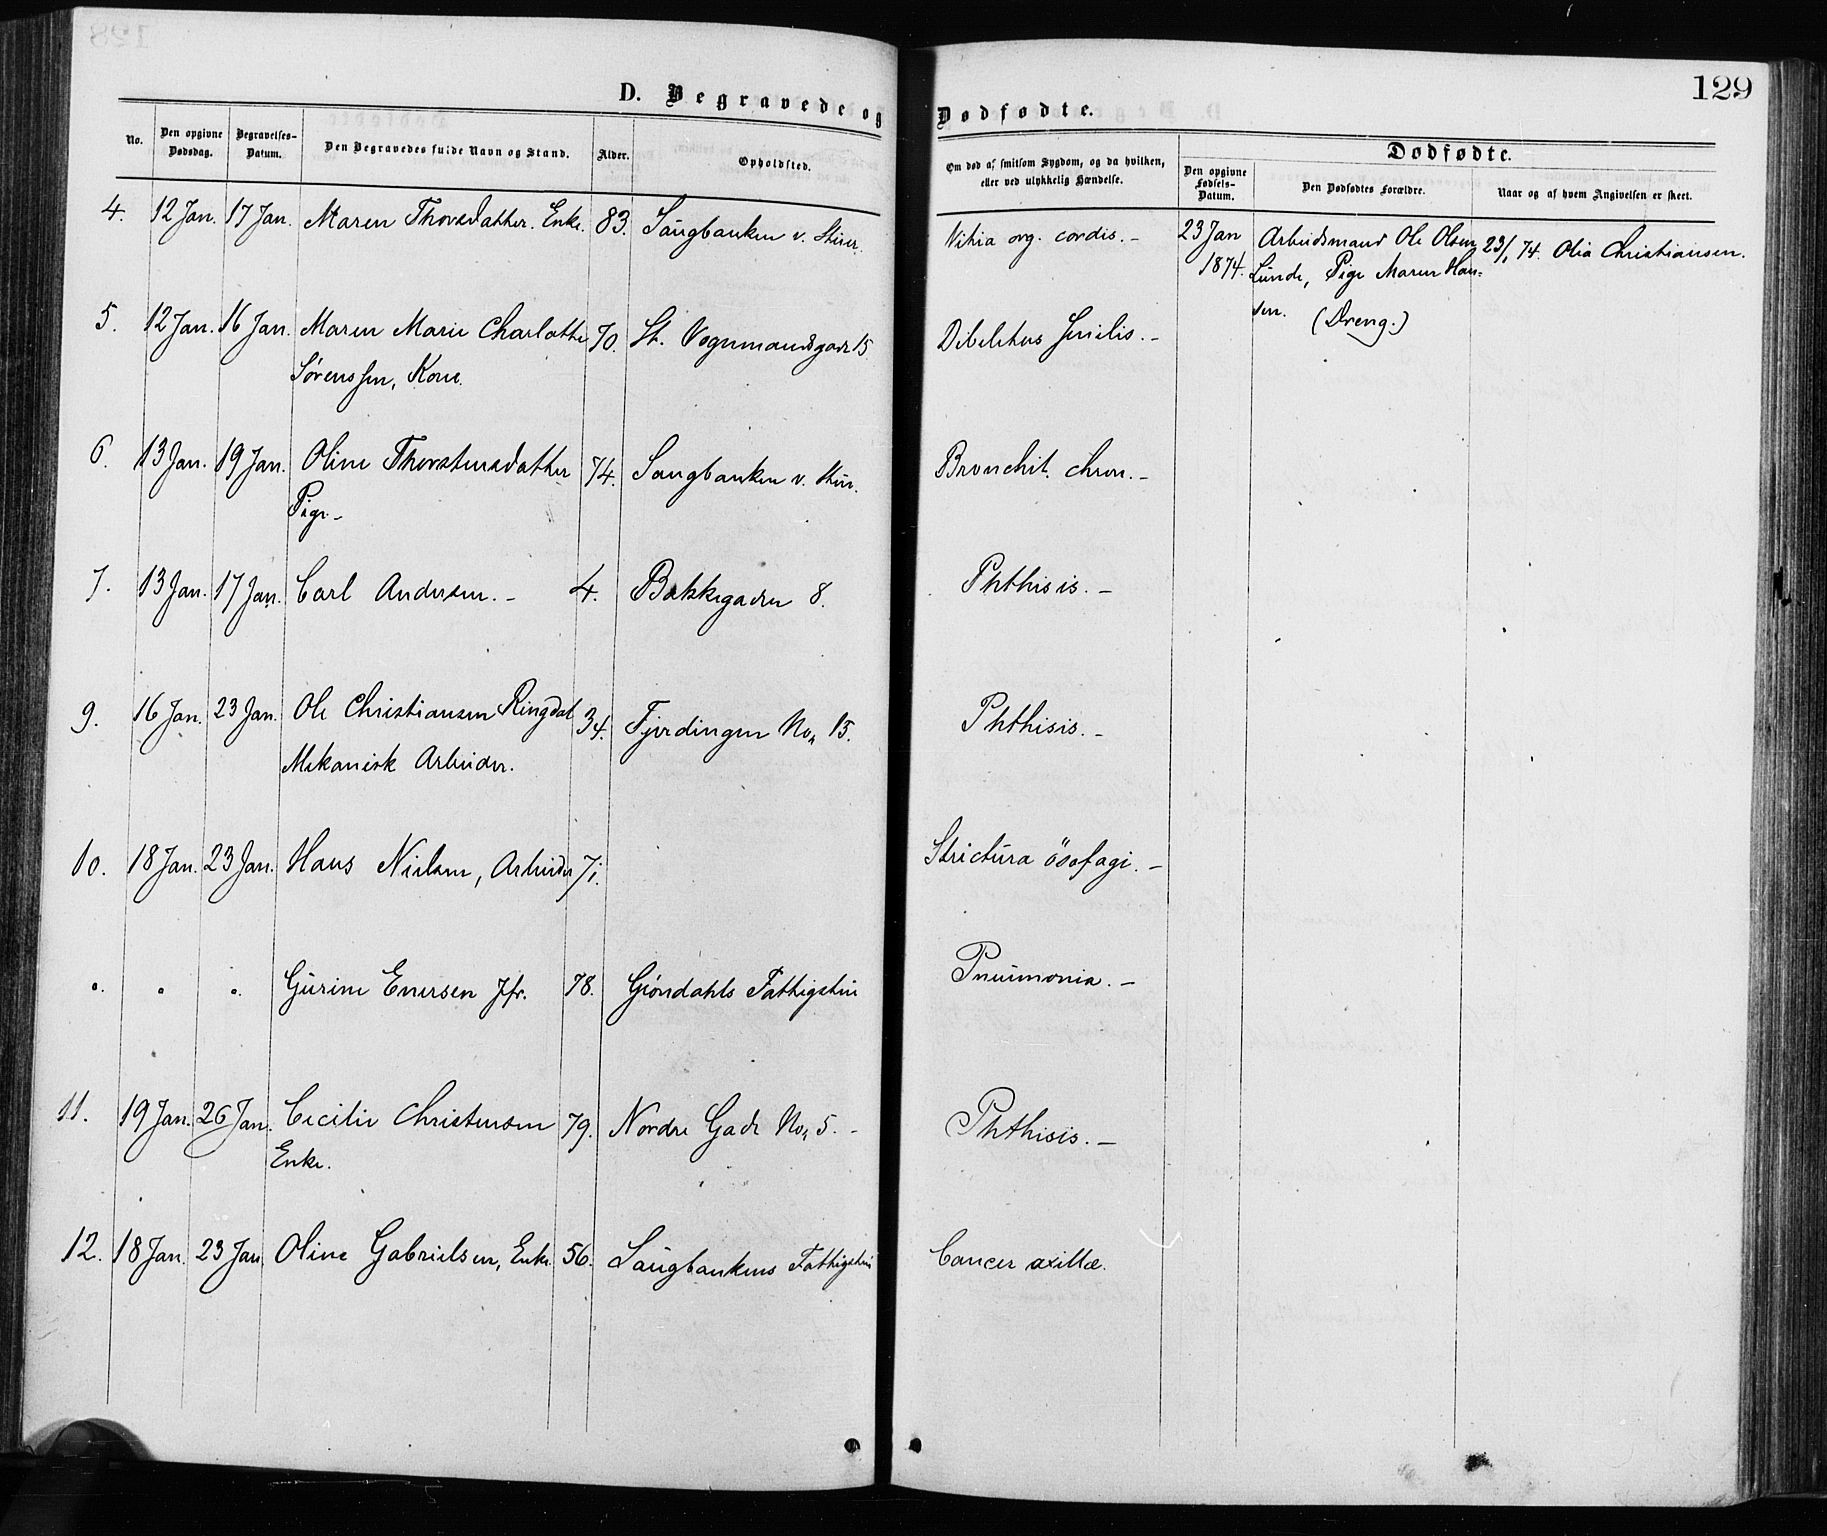 129
D. Begravede og Dødfødte.
No.
Den opgivne Dødsdag.
Begravelses-Datum.
Den Begravedes fulde Navn og Stand.
Alder.
Opholdsted.
Om død af smitsom Sygdom, og da hvilken, eller ved ulykkelig Hændelse.
Dødfødte.
Den opgivne Fødsels-Datum.
Den Dødfødtes Forældre.
Naar og af hvem Angivelsen er skeet.
4. 12 Jan. 17 Jan. Maren Thorsdatter. Enke. 83. Saugbanken v. Vitia org. cordis. –
23 Jan 1874. Arbeidsmand Ole Olsen Lunde, Pige Maren Hansen. (Dreng.) 23/1 74. Olia Christiansen.
5. 12 Jan. 16 Jan. Maren Marie Charlotte 70. St. Vognmandsgade 15 Dibilitas Senilis. –
Sørenssen, Kone.
6. 13 Jan. 19 Jan. Oline Thorstensdatter 74. Saugbanken v. Bronchit. chron. –
Pige –
7. 13 Jan. 17 Jan. Carl Andersen. – 4. Bakkegaden 8. Phthisis. –
9. 16 Jan. 23 Jan. Ole Christiansen Ringdal 34. Fjerdingen No. 15. Phthisis. –
Mekanisk Arbeider.
10. 18 Jan. 23 Jan. Hans Nielsen, Arbeider 71. Strictura ösofagi. –
" " " Gurine Enersen Jfr. 78. Grøndahls Fattigstue Pneumonia. –
11. 19 Jan. 26 Jan. Cecilie Christensen 79. Nordre Gade No. 5. – Phthisis. –
Enke.
12. 18 Jan. 23 Jan. Oline Gabrielsen, Enke 56. Saugbankens Fattigstue Cancer axillæ.